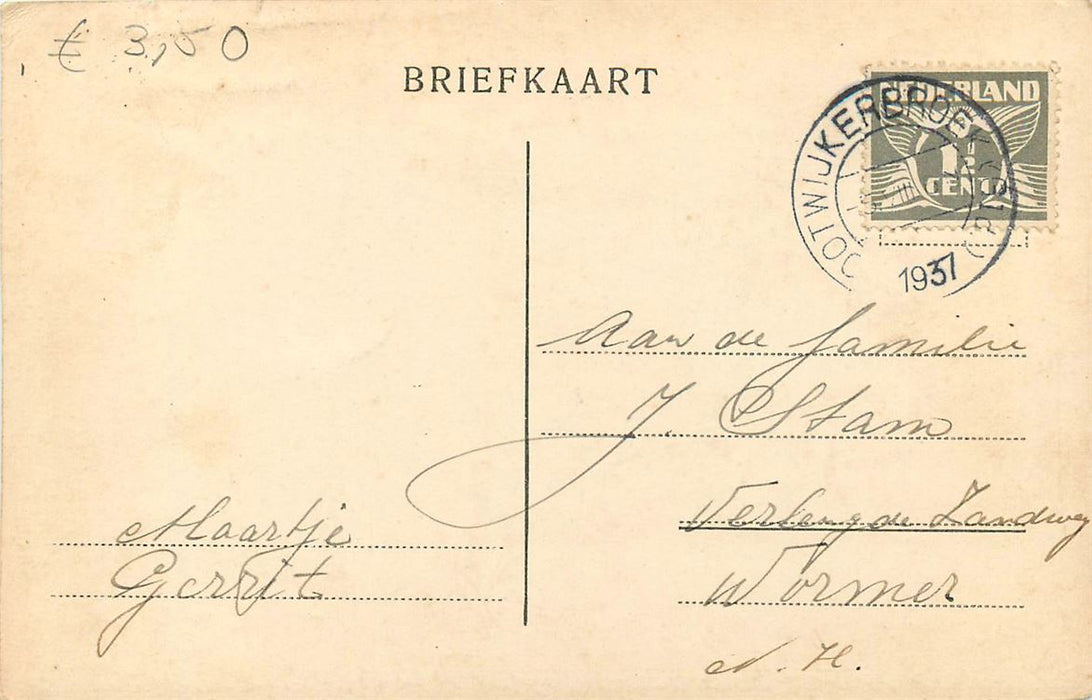 € 3,50
BRIEFKAART
NEDERLAND
1½
CENT
OOTWIJKERBROEK
1937
Aan de familie
J. Stam
Verlengde Zandweg
Wormer
N. H.
Maartje
Gerrit